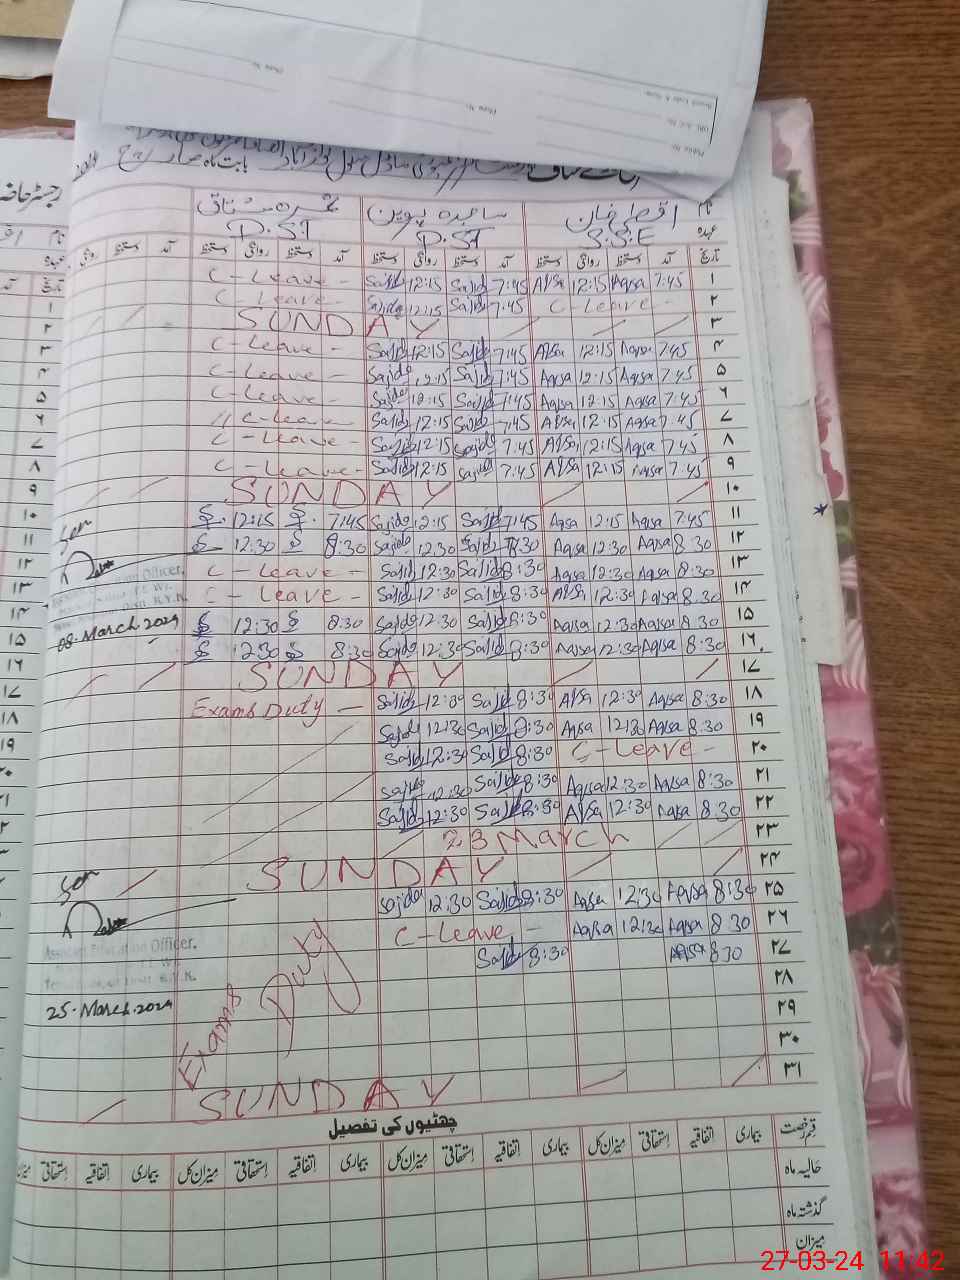 بابت ماہ مارچ
نام اقصیٰ خان ساجدہ پروین
عہدہ S.S.E P.ST P.ST
تاریخ آمد دستخط روانگی دستخط آمد دستخط روانگی دستخط آمد دستخط روانگی دستخط آمد روانگی
C - Leave - Sajida 12:15 Sajida 7:45 Aqsa 12:15 Aqsa 7:45 ۱
C - Leave - Sajida 12:15 Sajida 7:45 C - Leave - ۲
SUNDAY ۳
C - Leave - Sajida 12:15 Sajida 7:45 Aqsa 12:15 Aqsa 7:45 ۴
C - Leave - Sajida 12:15 Sajida 7:45 Aqsa 12:15 Aqsa 7:45 ۵
C - Leave - Sajida 12:15 Sajida 7:45 Aqsa 12:15 Aqsa 7:45 ۶
C - Leave Sajida 12:15 Sajida 7:45 Aqsa 12:15 Aqsa 7:45 ۷
C - Leave - Sajida 12:15 Sajida 7:45 Aqsa 12:15 Aqsa 7:45 ۸
C - Leave - Sajida 12:15 Sajida 7:45 Aqsa 12:15 Aqsa 7:45 ۹
SUNDAY ۱۰
12:15 7:45 Sajida 12:15 Sajida 7:45 Aqsa 12:15 Aqsa 7:45 ۱۱
12:30 8:30 Sajida 12:30 Sajida 8:30 Aqsa 12:30 Aqsa 8:30 ۱۲
C - Leave - Sajida 12:30 Sajida 8:30 Aqsa 12:30 Aqsa 8:30 ۱۳
C - Leave - Sajida 12:30 Sajida 8:30 Aqsa 12:30 Aqsa 8:30 ۱۴
12:30 8:30 Sajida 12:30 Sajida 8:30 Aqsa 12:30 Aqsa 8:30 ۱۵
12:30 8:30 Sajida 12:30 Sajida 8:30 Aqsa 12:30 Aqsa 8:30 ۱۶
SUNDAY ۱۷
Exams Duty - Sajida 12:30 Sajida 8:30 Aqsa 12:30 Aqsa 8:30 ۱۸
Sajida 12:30 Sajida 8:30 Aqsa 12:30 Aqsa 8:30 ۱۹
Sajida 12:30 Sajida 8:30 C - Leave - ۲۰
Sajida 12:30 Sajida 8:30 Aqsa 12:30 Aqsa 8:30 ۲۱
Sajida 12:30 Sajida 8:30 Aqsa 12:30 Aqsa 8:30 ۲۲
23 March ۲۳
SUNDAY ۲۴
Sajida 12:30 Sajida 8:30 Aqsa 12:30 Aqsa 8:30 ۲۵
C - Leave - Aqsa 12:30 Aqsa 8:30 ۲۶
Sajida 8:30 Aqsa 8:30 ۲۷
۲۸
۲۹
۳۰
۳۱
Exams Duty
SUNDAY
Seen
Education Officer.
08. March 2024
Seen
Assistant Education Officer.
25. March. 2024
چھٹیوں کی تفصیل
قسم رخصت بیماری اتفاقیہ استحقاقی میزان کل بیماری اتفاقیہ استحقاقی میزان کل بیماری اتفاقیہ استحقاقی
حالیہ ماہ
گذشتہ ماہ
میزان
27-03-24 11:42